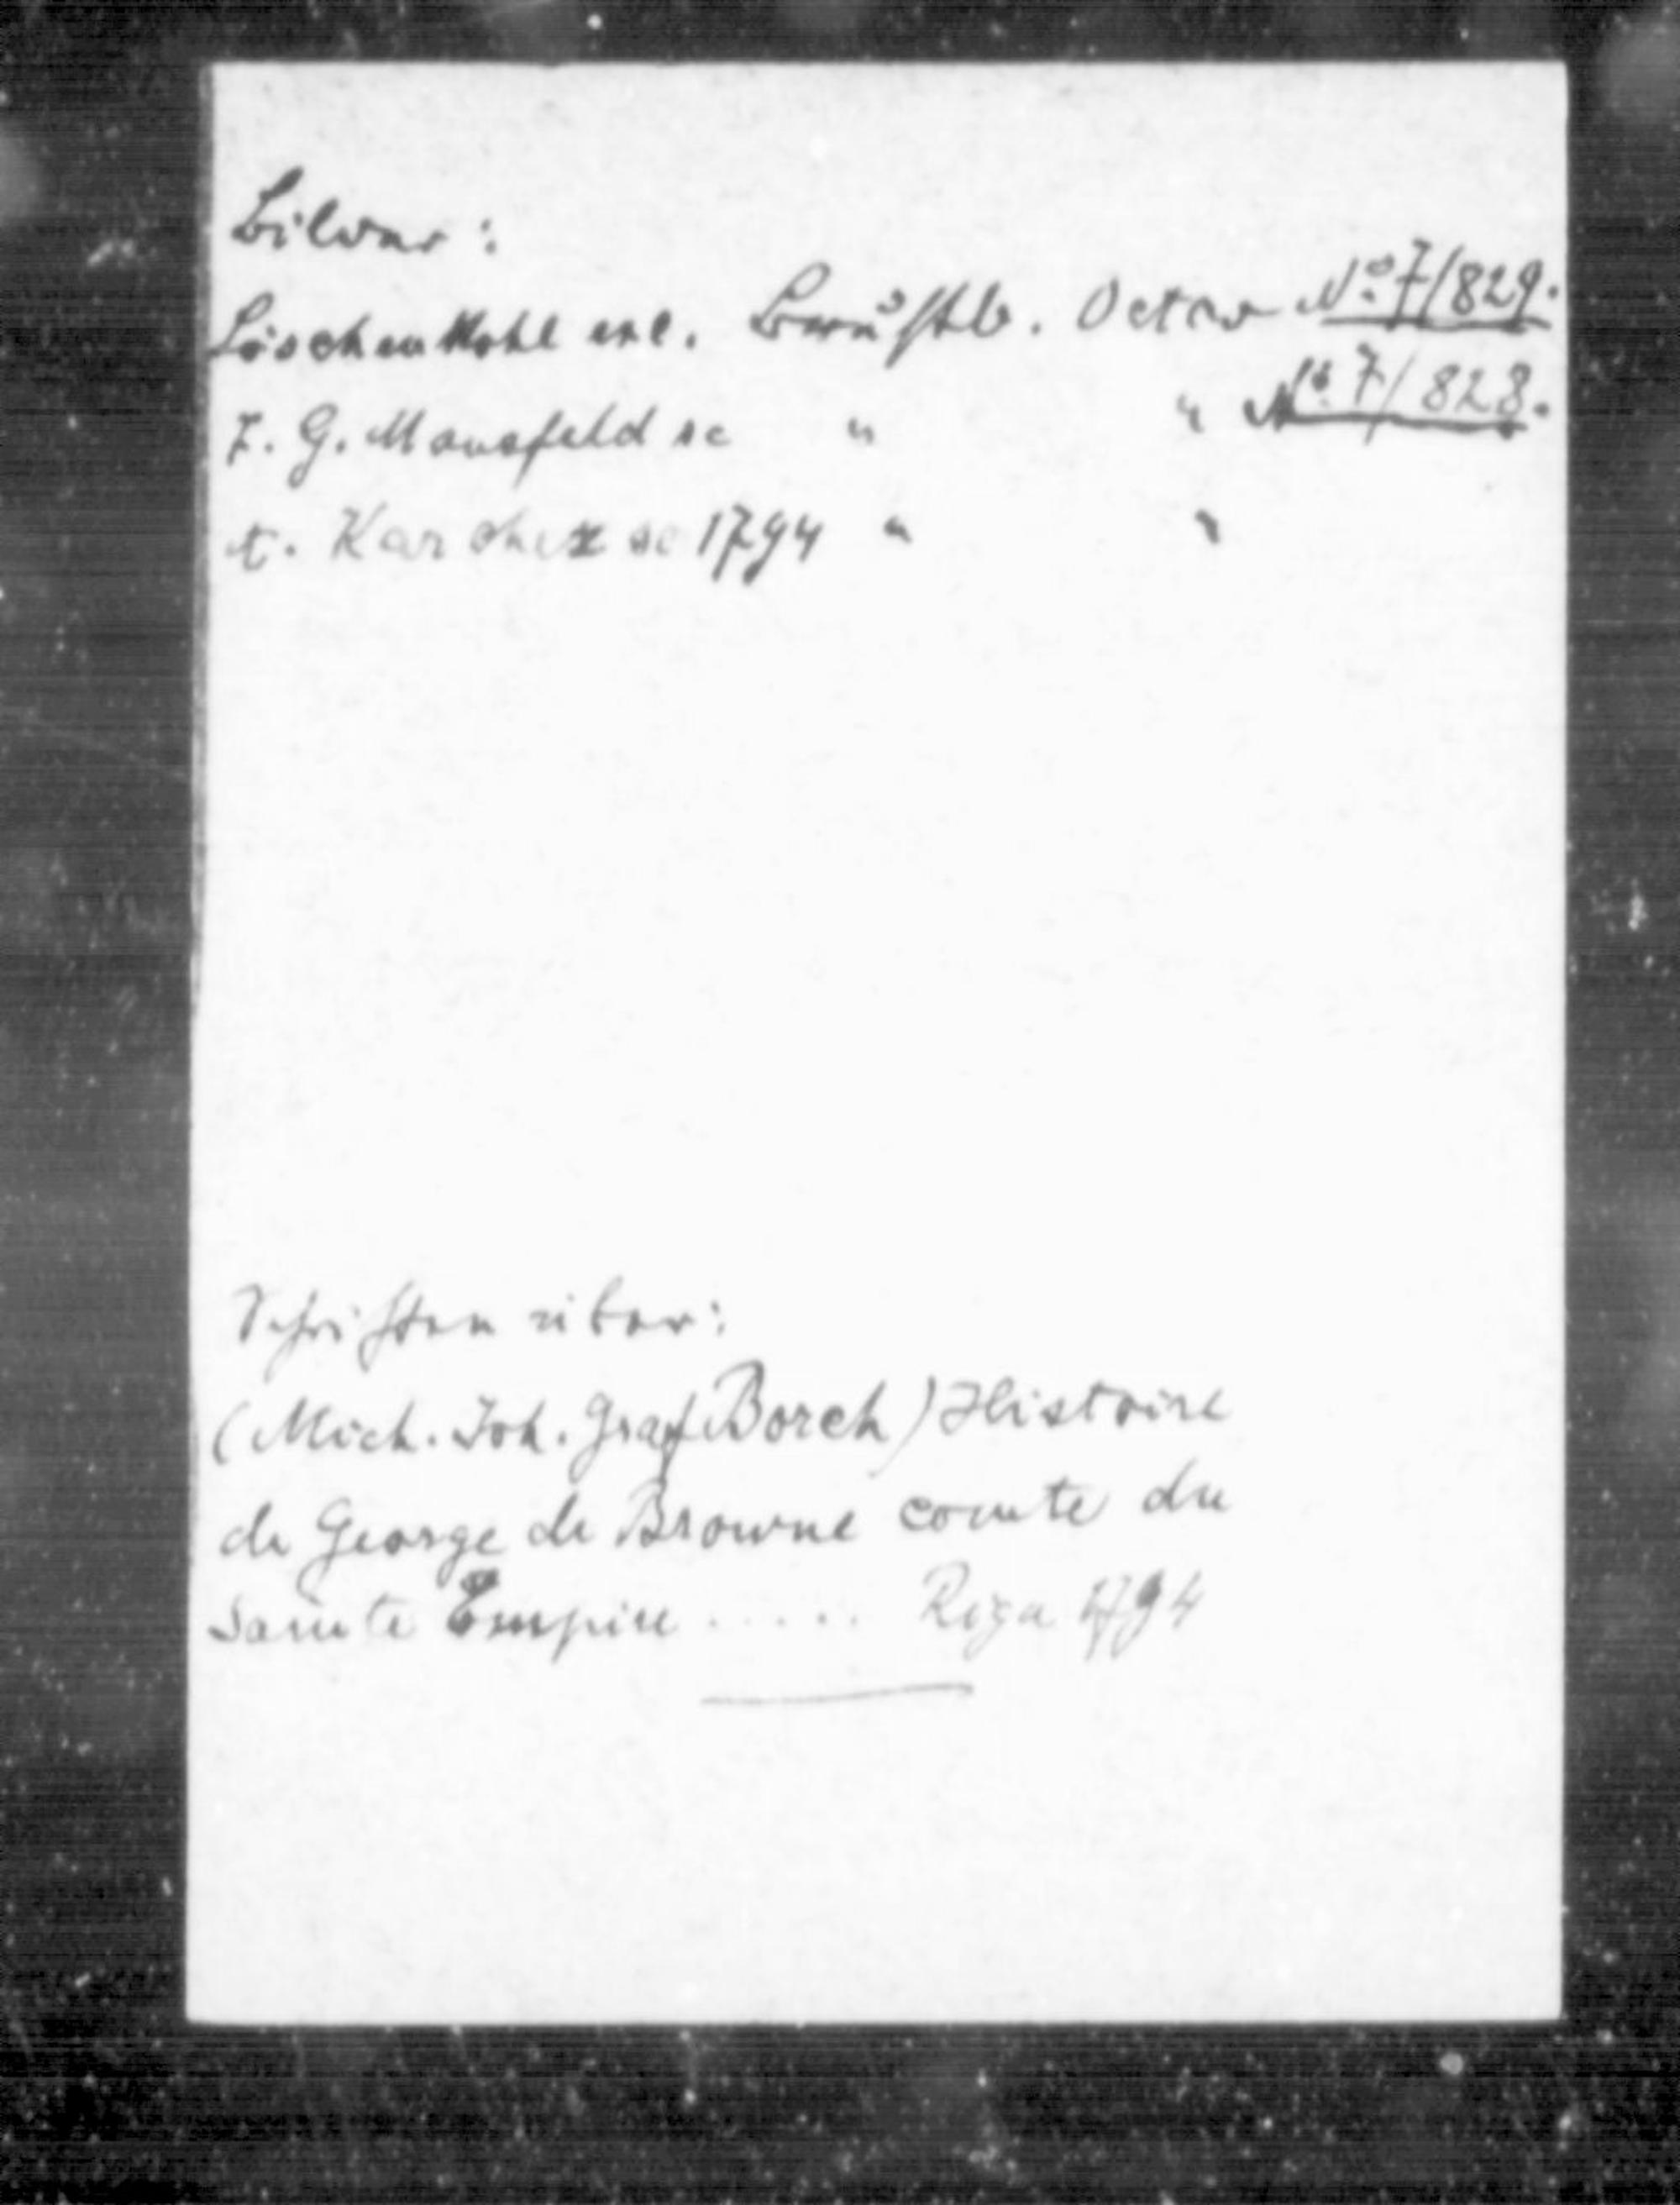 Bilder:
Löschenkohl exc. Brustb. Octav No. 7/829.
J. G. Mansfeld sc " " No. 7/828.
A. Karcher sc 1794 " "
Schriften über:
(Mich. Joh. Graf Borch) Histoire
de George de Browne comte du
Sainte Empire ..... Riga 1794